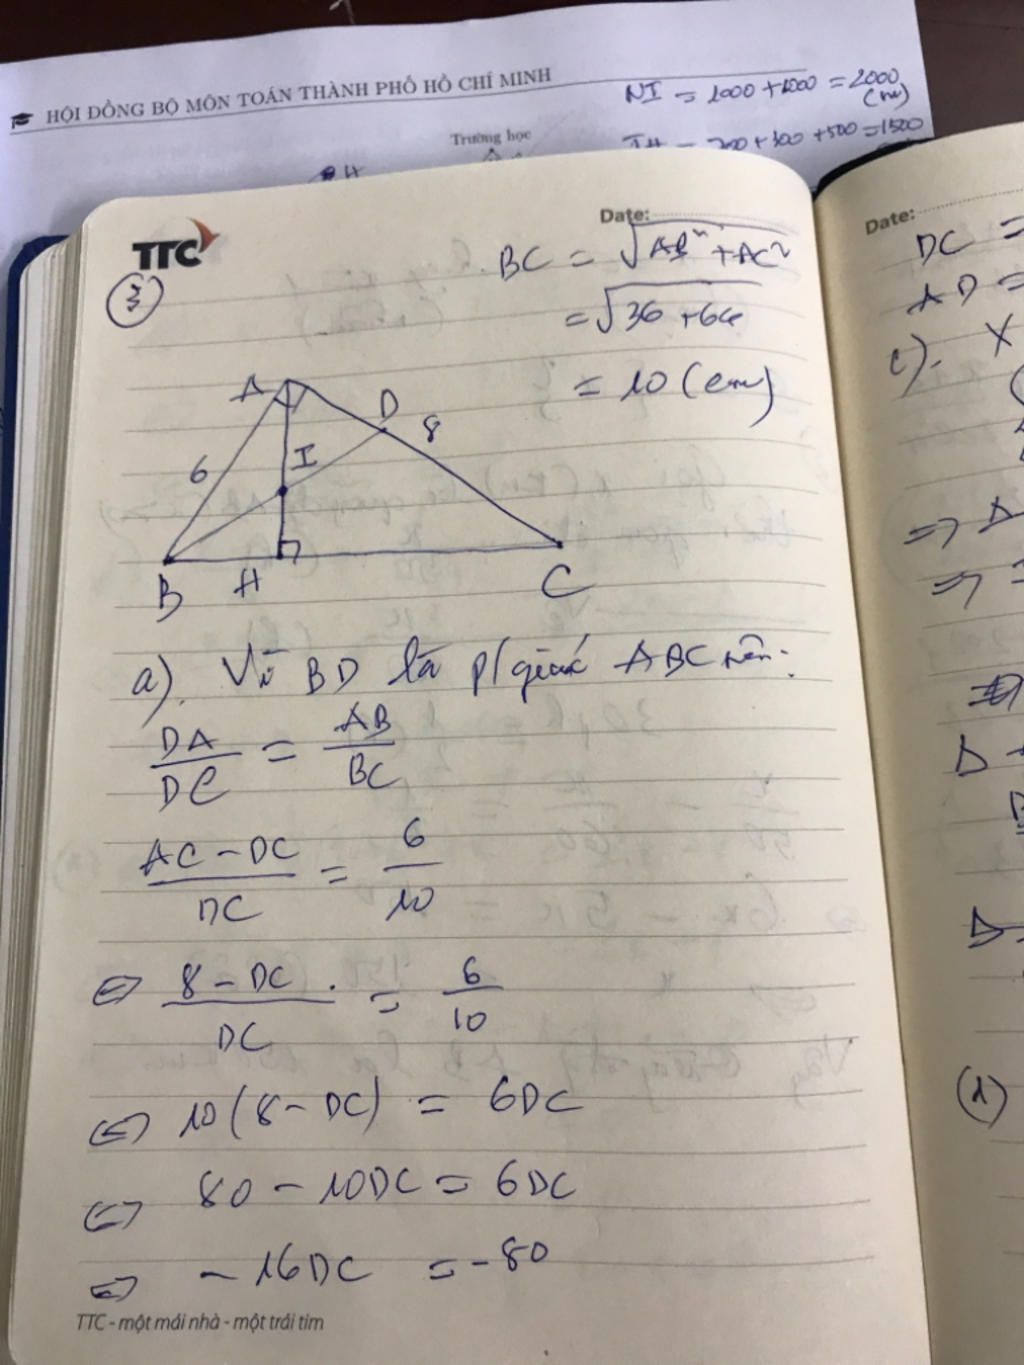 HỘI ĐỒNG BỘ MÔN TOÁN THÀNH PHỐ HỒ CHÍ MINH
NI = 1000 + 1000 = 2000
(m)
Trường học
+ 300 + 500 = 1500
H
TTC
Date:
3
BC = √AB² + AC²
= √36 + 64
= 10 (cm)
A
D
8
I
6
B
H
C
a). Vì BD là p/giác ABC nên:
DA/DC = AB/BC
AC - DC/DC = 6/10
<=> 8 - DC/DC = 6/10
<=> 10(8 - DC) = 6DC
<=> 80 - 10DC = 6DC
<=> -16DC = -80
TTC - một mái nhà - một trái tim
Date:
DC =
AD =
c). X
=> A
=>
D
D
(1)